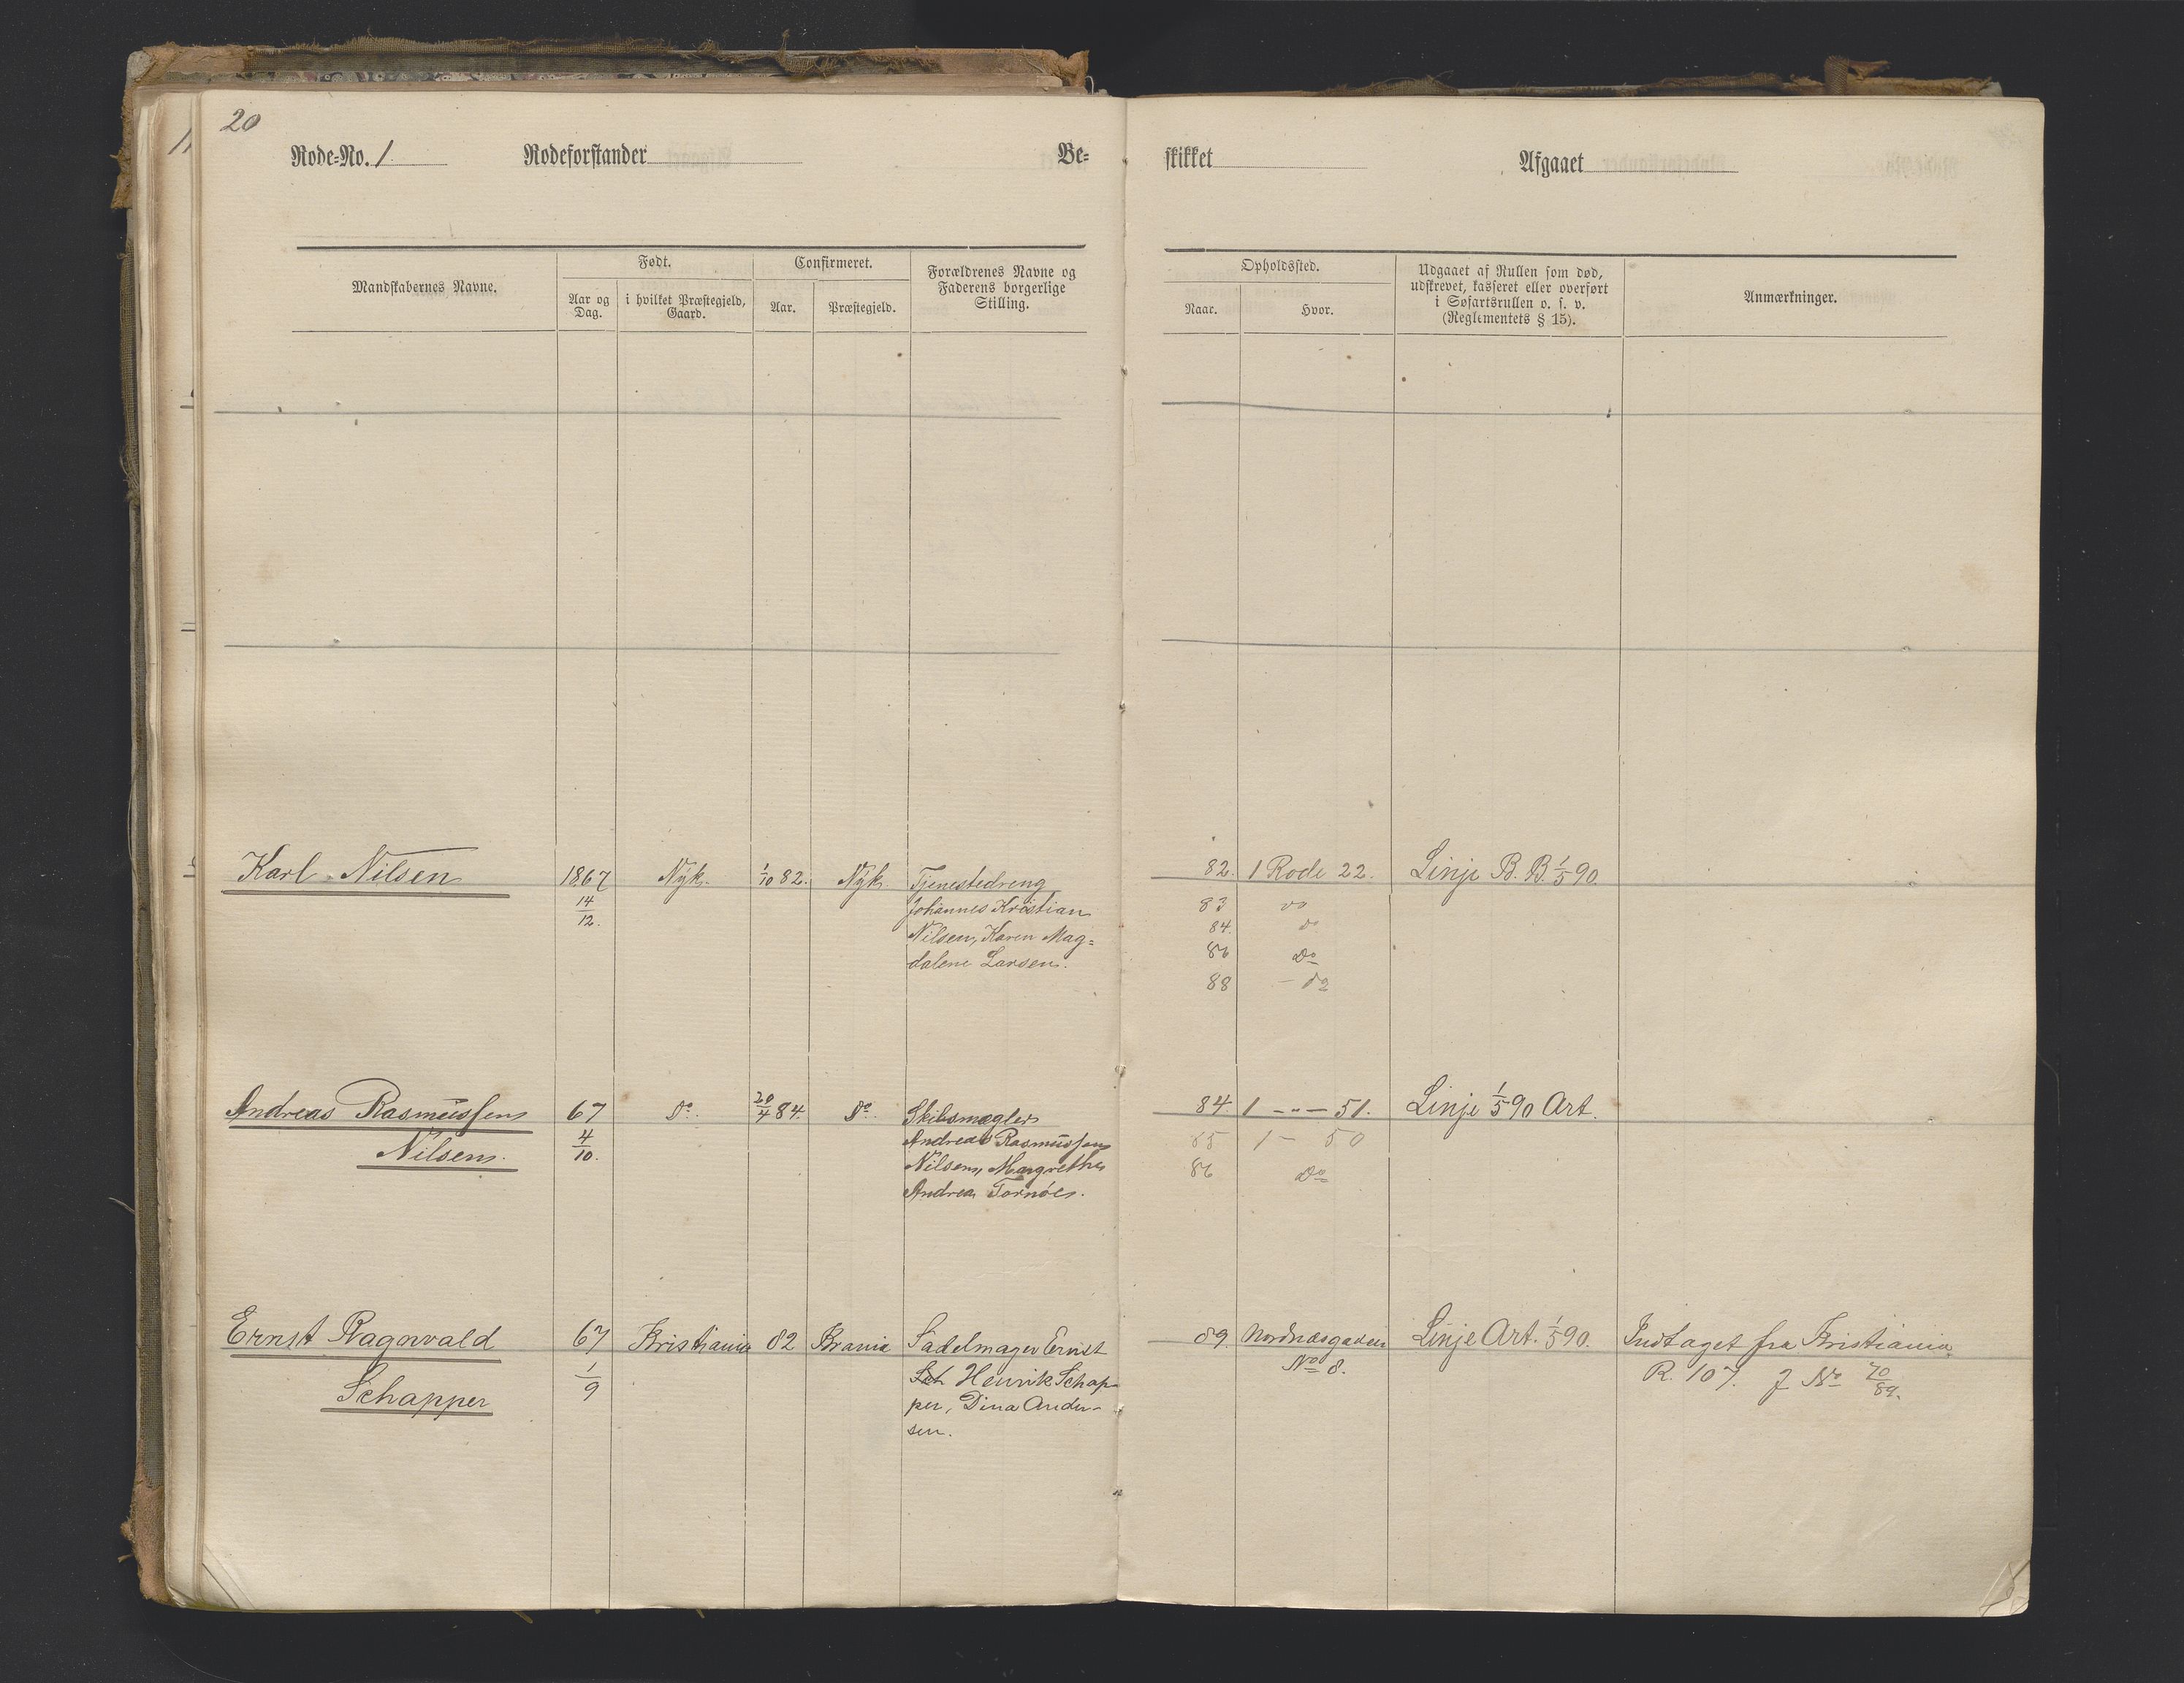 20
Rode-No. 1
Rodeforstander
Be-
skikket
Afgaaet
Mandskabernes Navne.
Født.
Aar og
Dag.
i hvilket Præstegjeld,
Gaard.
Confirmeret.
Aar.
Præstegjeld.
Forældrenes Navne og
Faderens borgerlige
Stilling.
Opholdssted.
Naar.
Hvor.
Udgaaet af Rullen som død,
udskrevet, kasseret eller overført
i Søfartsrullen o. s. v.
(Reglementets § 15).
Anmærkninger.
Karl Nilsen
1867
14/12.
Nyk.
1/10 82.
Nyk.
Tjenestedreng
Johannes Kristian
Nilsen, Karen Mag=
dalene Larsen.
82. 1 Rode 22.
83 do
84. do
86 Do
88 - do
Linje B. B. 1/5 90.
Andreas Rasmussen
Nilsen.
67
4/10.
do.
20/4 84.
do.
Skibsmægler
Andreas Rasmussen
Nilsen, Margrethe
Andrea Tornöe.
84. 1 -„- 51.
85 1 - 50
86 Do
Linje 1/5 90 Art.
Ernst Ragnvald
Schapper
67
1/9
Kristiania
82
Krania
Sadelmager Ernst
Sch Henrik Schap-
per, Dina Ander-
sen.
89. Nordnæsgaden
No 8.
Linje Art. 1/5 90.
Indtaget fra Kristiania
R. 107. J No 70/89.